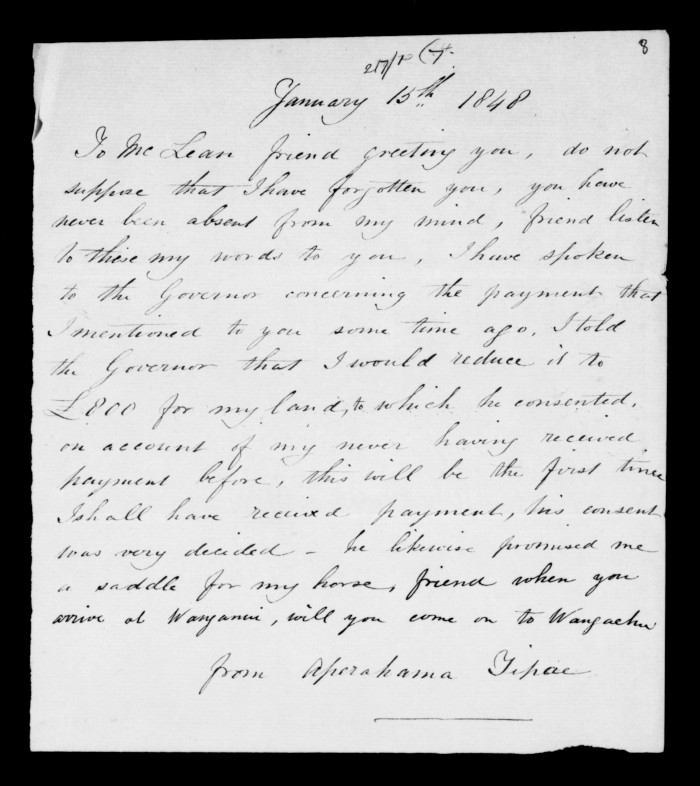 8
January 15th 1848
To McLean friend greeting you, do not
suppose that I have forgotten you, you have
never been absent from my mind, friend listen
to these my words to you, I have spoken
to the Governor concerning the payment that
I mentioned to you some time ago. I told
the Governor that I would reduce it to
£800 for my land, to which he consented.
on account of my never having received
payment before, this will be the first time
I shall have received payment, his consent
was very decided – he likewise promised me
a saddle for my horse, friend when you
arrive at Wanganui, will you come on to Wangaehu
from Aperahama Tipae